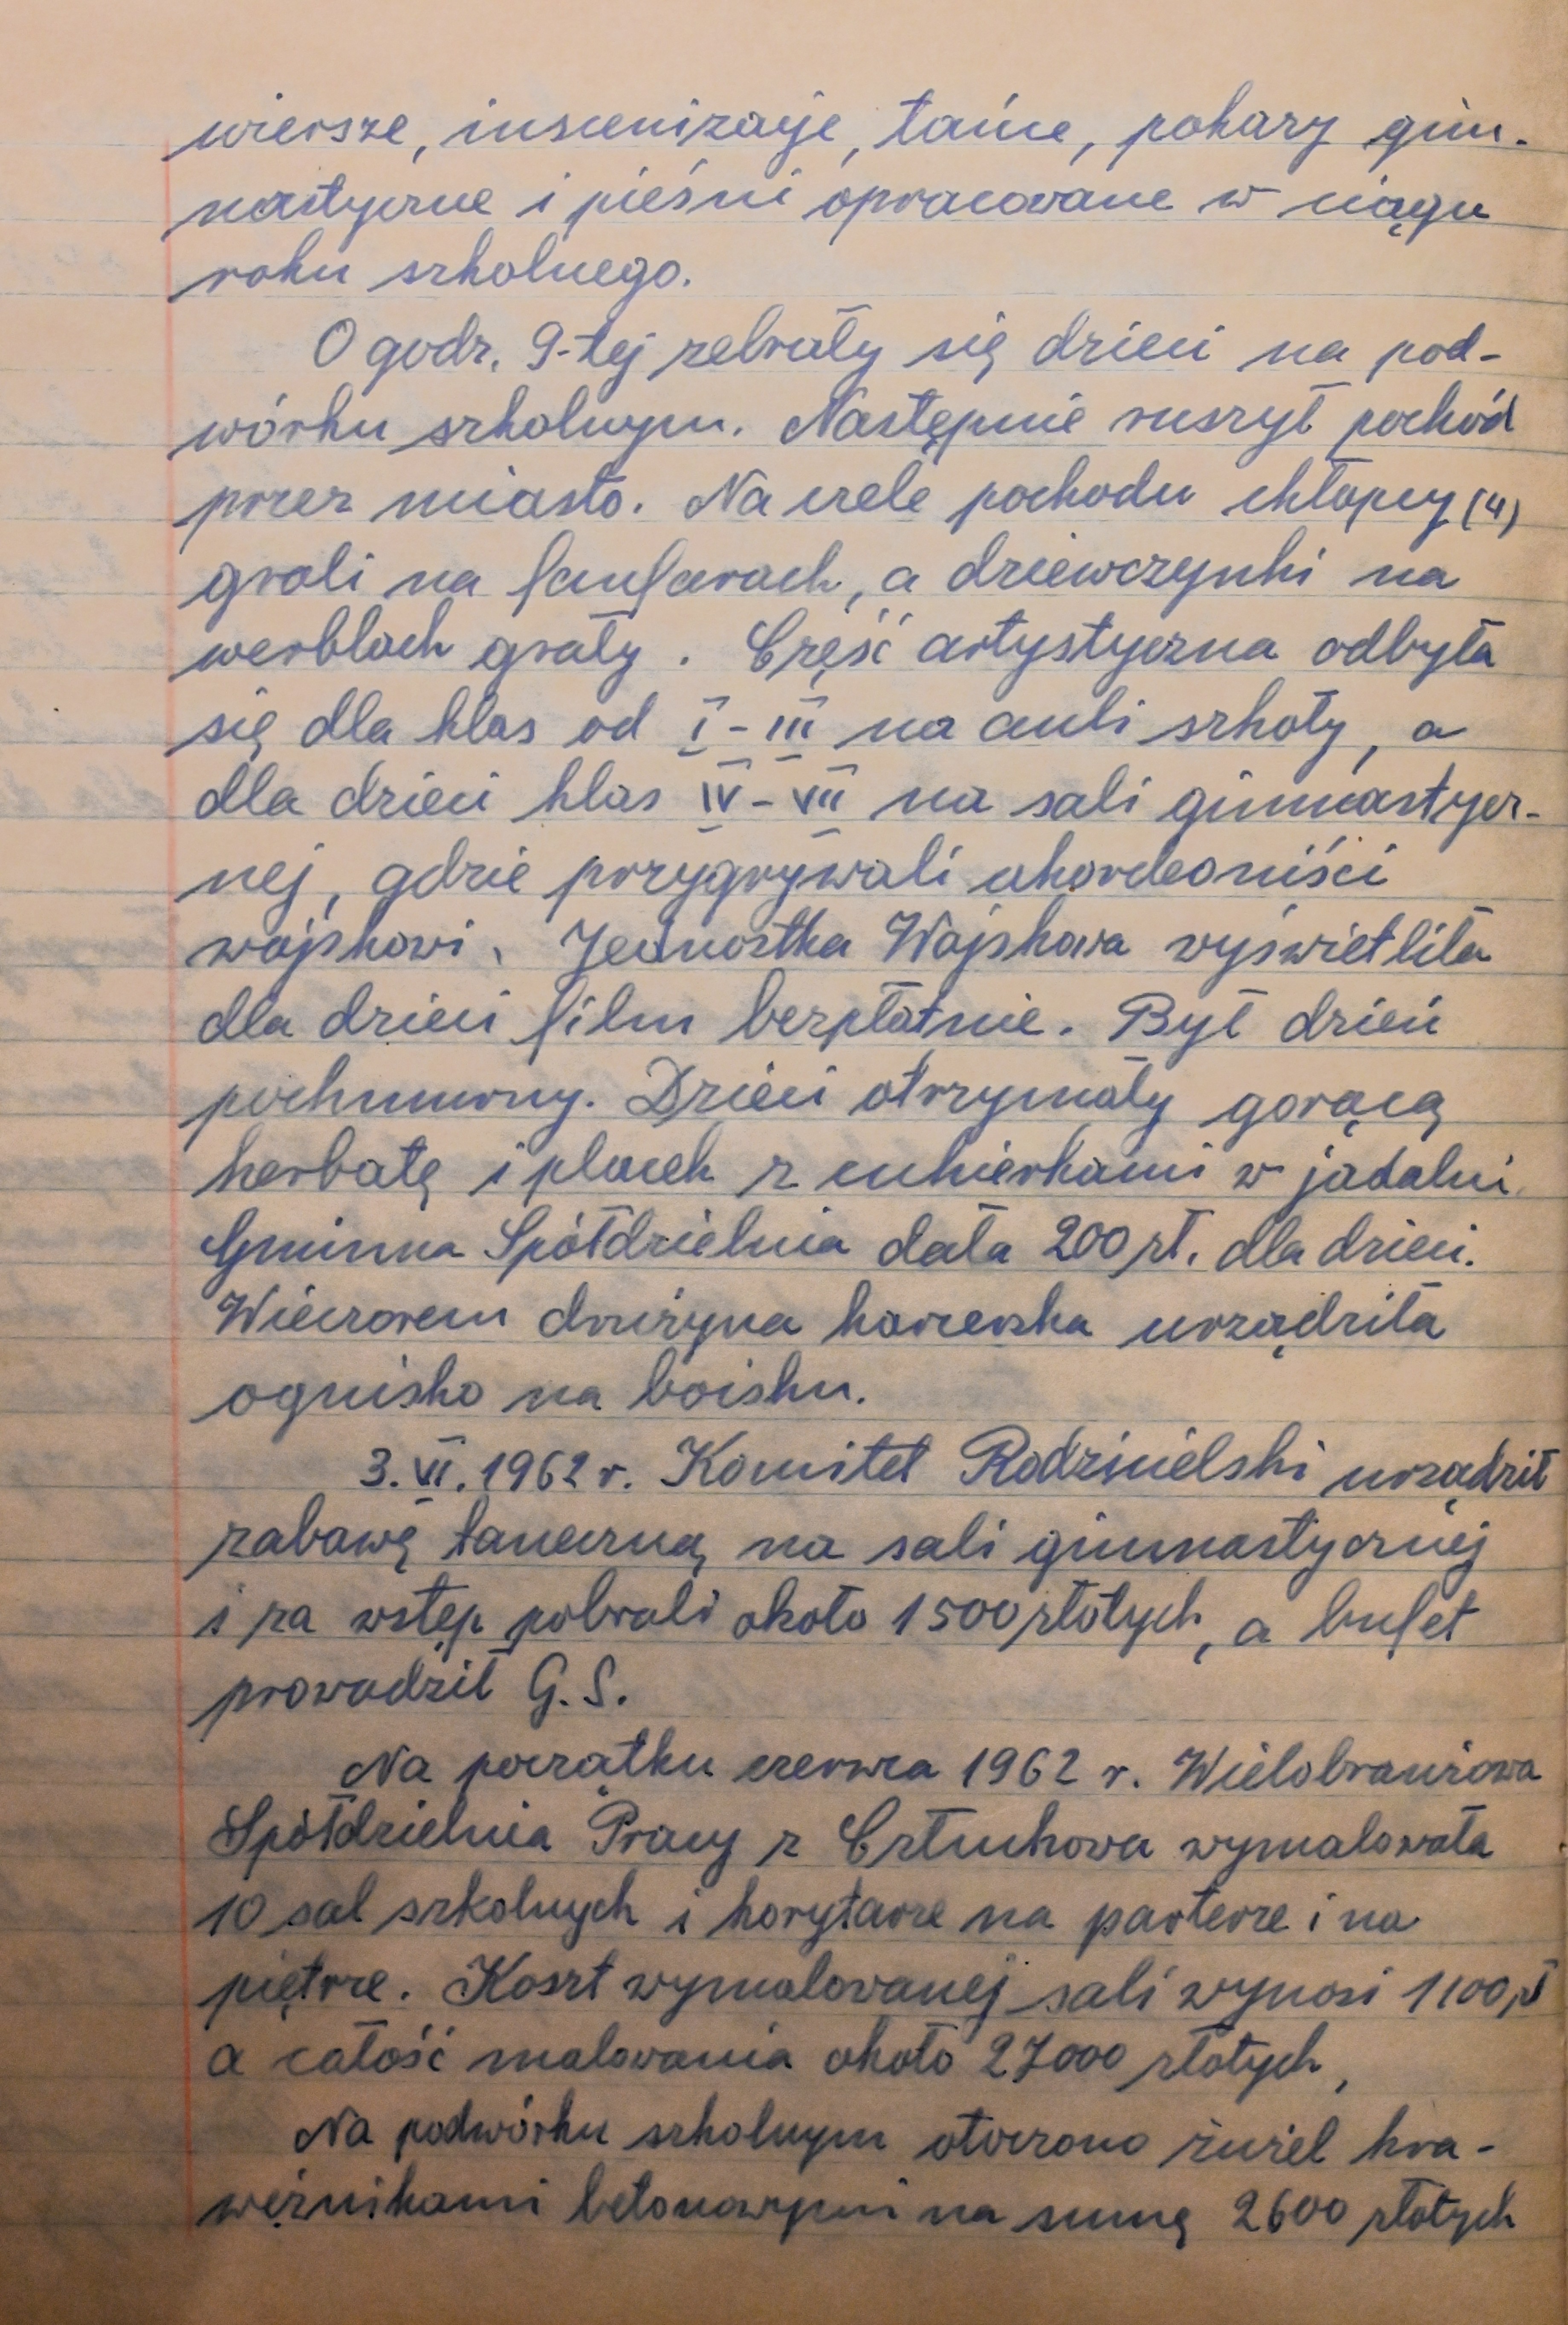 wiersze, inscenizacje, tańce, pokazy gim-
nastyczne i pieśni opracowane w ciągu
roku szkolnego.
O godz. 9-tej zebrały się dzieci na pod-
wórku szkolnym. Następnie ruszył pochód
przez miasto. Na czele pochodu chłopcy (4)
grali na fanfarach, a dziewczynki na
werblach grały. Część artystyczna odbyła
się dla klas od I-III na auli szkoły, a
dla dzieci klas IV-VII na sali gimnastycz-
nej, gdzie przygrywali akordeoniści
wojskowi. Jednostka Wojskowa wyświetliła
dla dzieci film bezpłatnie. Był dzień
pochmurny. Dzieci otrzymały gorącą
herbatę i placek z cukierkami w jadalni.
Gminna Spółdzielnia dała 200 zł. dla dzieci.
Wieczorem drużyna harcerska urządziła
ognisko na boisku.
3.VI.1962 r. Komitet Rodzicielski urządził
zabawę taneczną na sali gimnastycznej
i za wstęp pobrali około 1500 złotych, a bufet
prowadził G.S.
Na początku czerwca 1962 r. Wielobranżowa
Spółdzielnia Pracy z Człuchowa wymalowała
10 sal szkolnych i korytarze na parterze i na
piętrze. Koszt wymalowanej sali wynosi 1100 zł
a całość malowania około 27000 złotych,
Na podwórku szkolnym otoczono żużel kra-
wężnikami betonowymi na sumę 2600 złotych